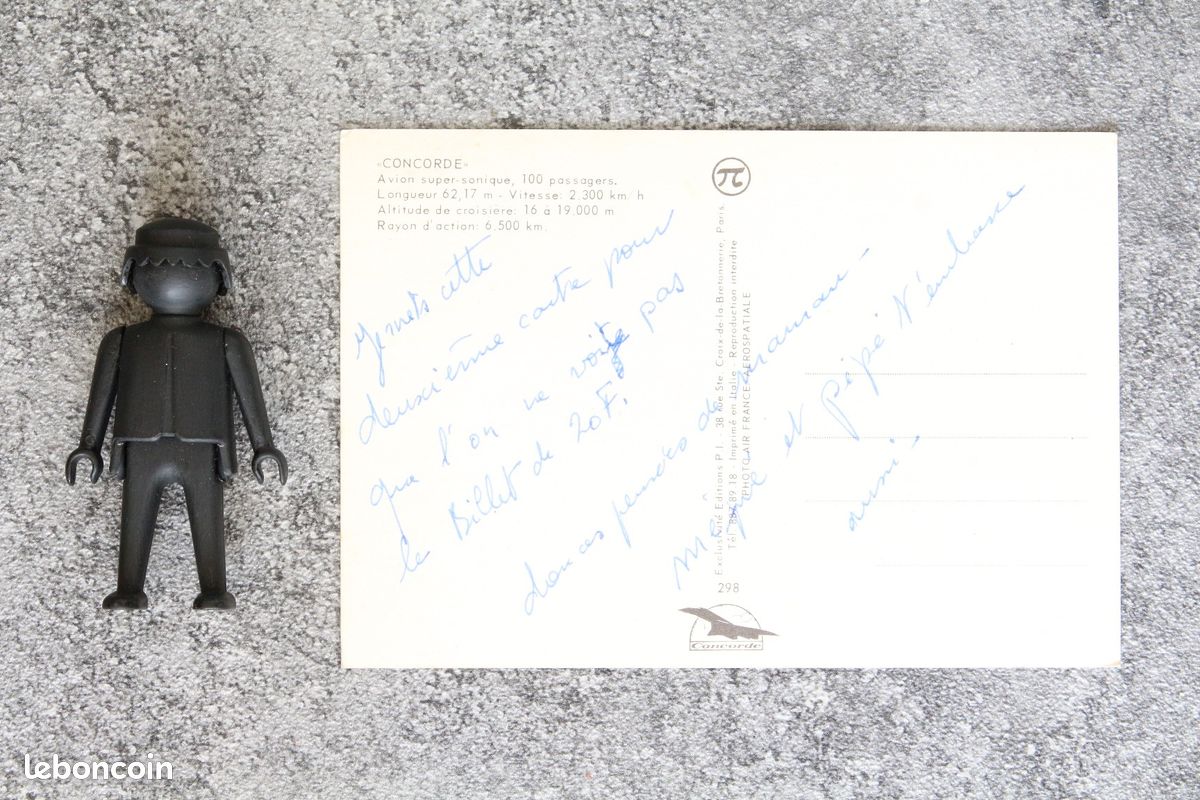 «CONCORDE»
Avion super-sonique, 100 passagers.
Longueur 62,17 m - Vitesse: 2.300 km/h
Altitude de croisière: 16 à 19.000 m
Rayon d'action: 6.500 km.
Je mets cette
deuxième carte pour
que l'on ne voit pas
le Billet de 20F.
douces pensées de maman -
Mémé et pépé t'embrasse
aussi -
π
Exclusivité Editions P.I. - 38 rue Ste. Croix-de-la-Bretonnerie, Paris.
Tél. 887 89 18 - Imprimé en Italie - Reproduction interdite
PHOTO AIR FRANCE-AEROSPATIALE
298
Concorde
leboncoin